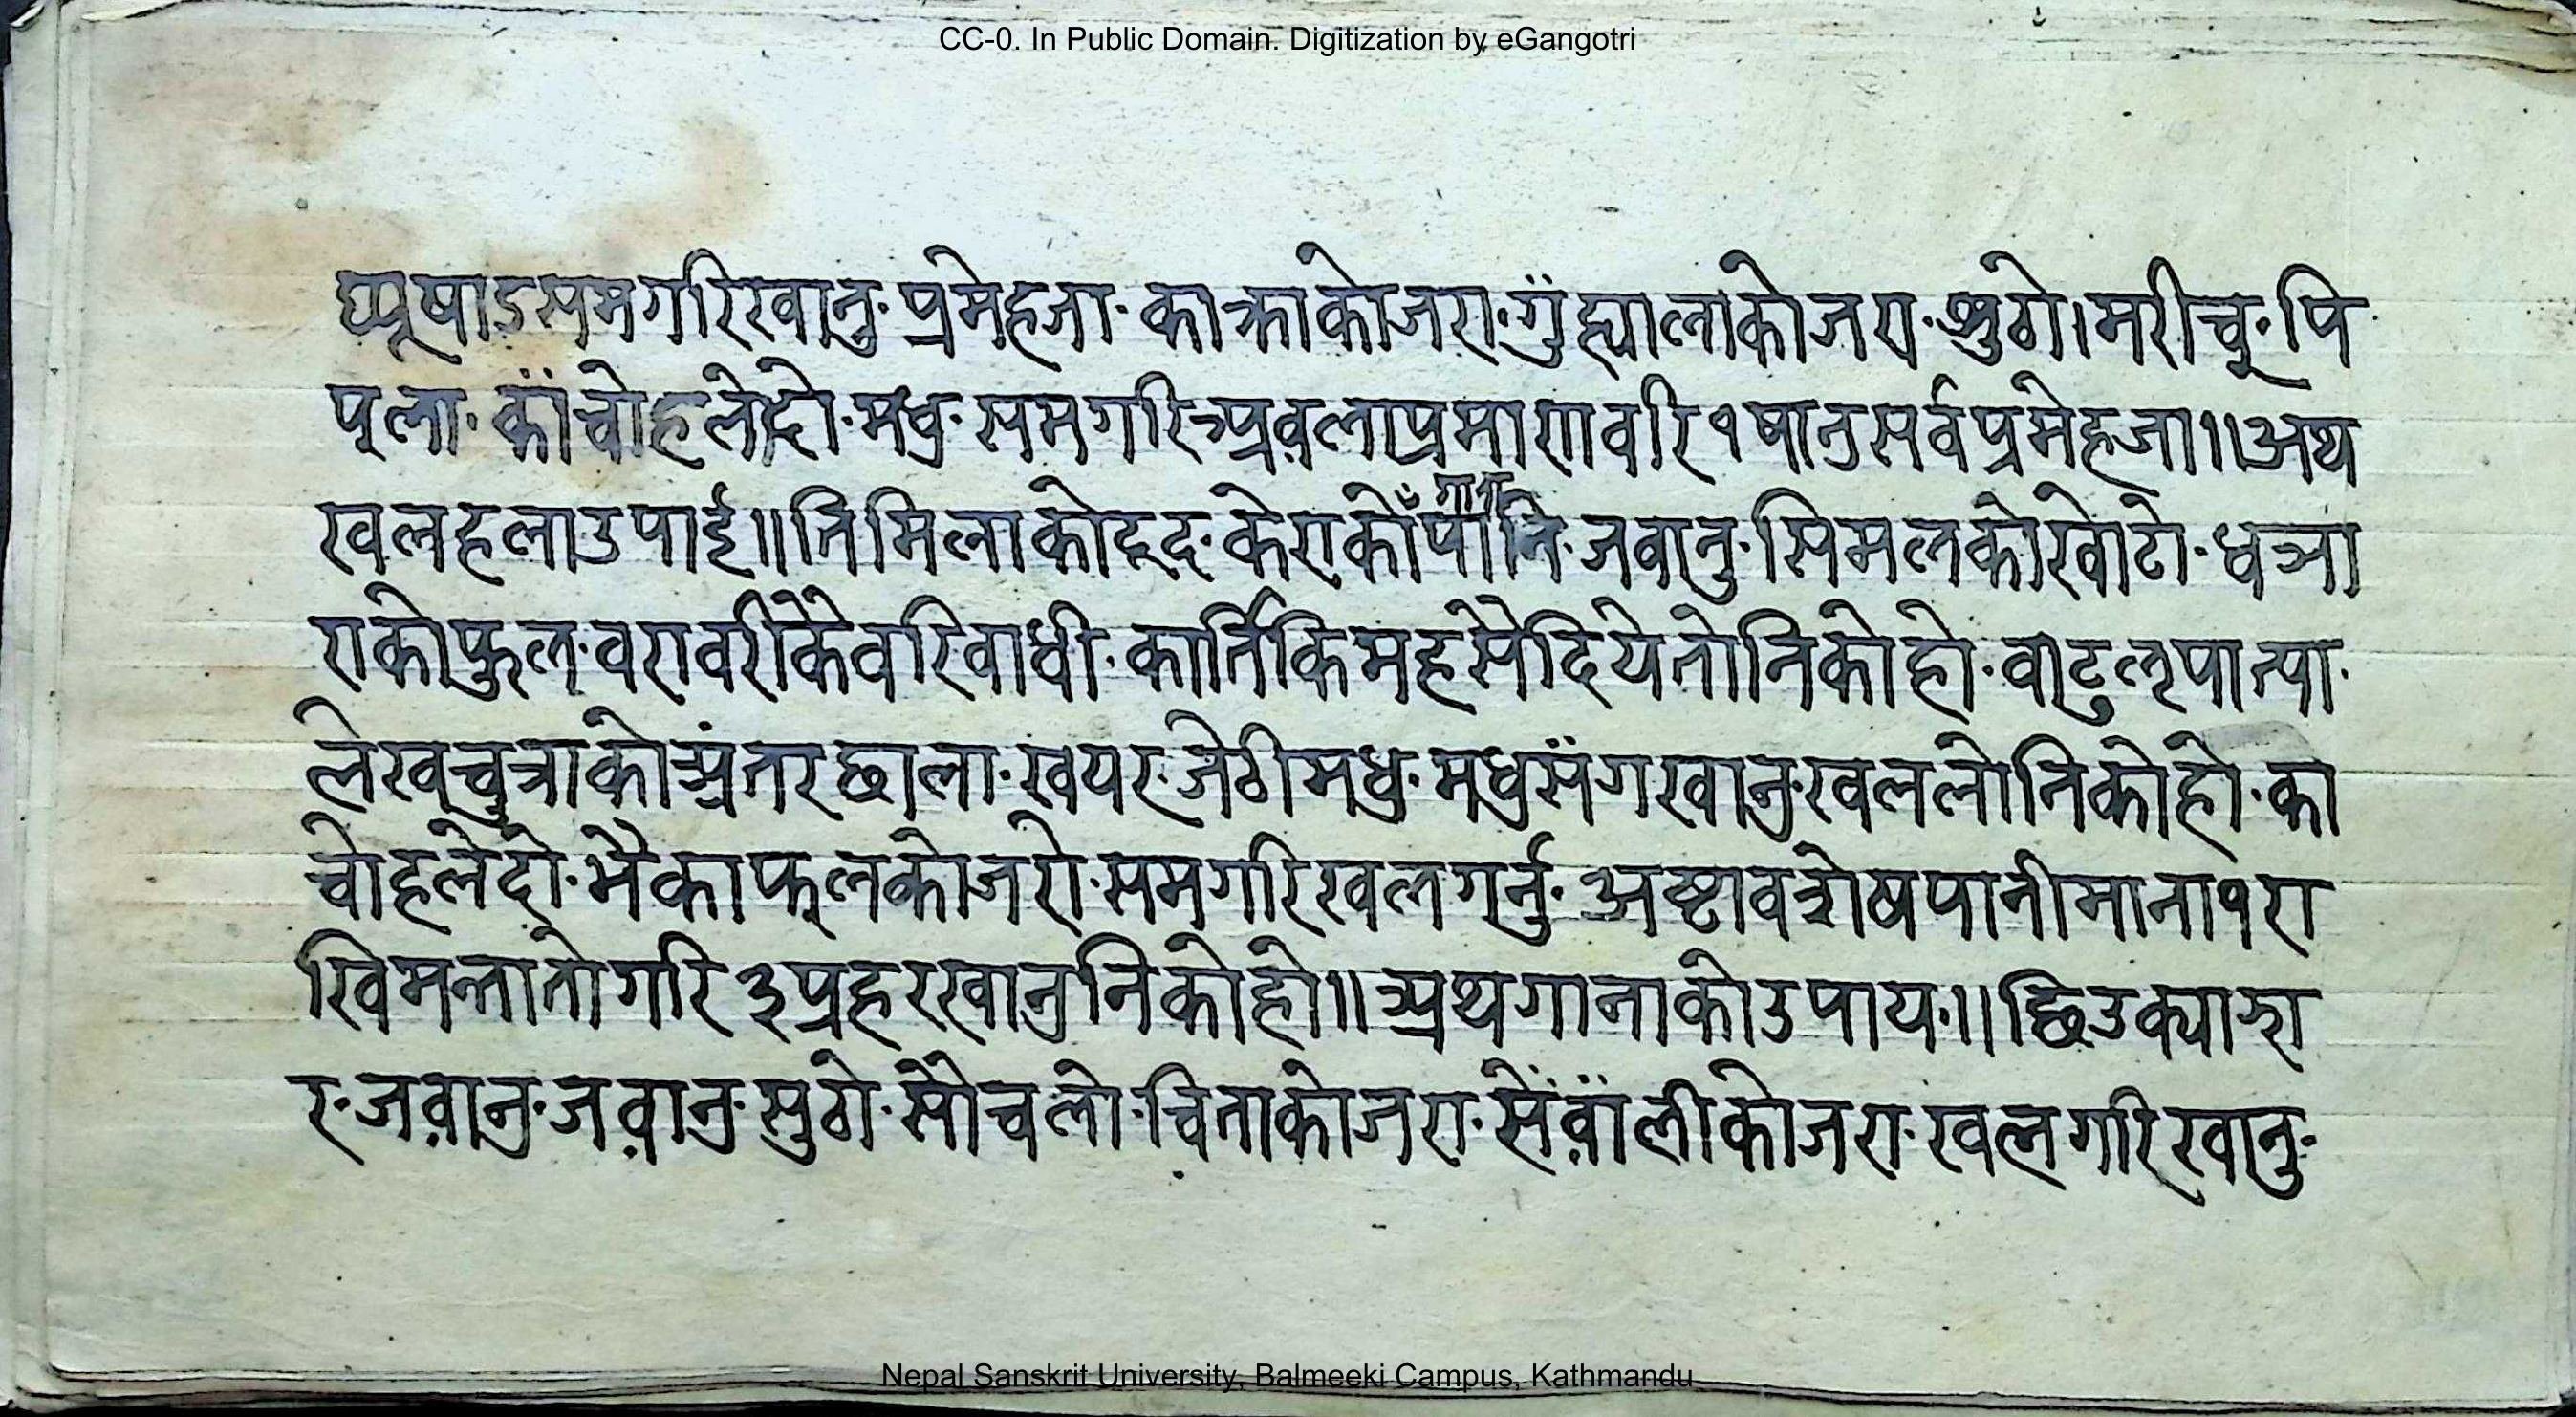 CC-0. In Public Domain. Digitization by eGangotri
घ्यूषाऽसमगरिखानु· प्रमेहजा· काक्राकोजरा· गुँह्यालाकोजरा· शुठो।मरीच्· पि
प्ला· काँचोहलेदो· मधु· समगरित्र्प्रव़लाप्रमाणवरि१षानुसर्वप्रमेहजा॥अथ
खलहलाउपाई॥तिमिलाकोदूद· केराकोँपानि· जवानु· सिमलकोखोटो· धत्र्या
राकोफुल· वरावरीकैवरिवाधी· कार्तिकिमहसैदियेतोनिकोहो· वाटुलृपात्पा·
लेखच्चुत्राकोत्र्प्रंतरछाला· खयर· जेठीमधु· मधुसँगखानुखललोनिकोहो· का
चोहलेदो· भैकाफलकोजरो· समगरिखलगर्नु· अष्टावशेषपानीमाना१रा
खिमन्तातोगरि३प्रहरखानुनिकोहो॥त्र्प्रथगानाकोउपाय·॥छिउक्याझा
र· जव़ानु· जव़ानु· सुठो· सौचलो· चिताकोजरा· सेँव़ाँलीकोजरा· खलगरिखानु·
Nepal Sanskrit University, Balmeeki Campus, Kathmandu